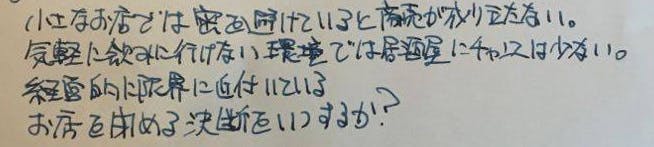 小さなお店では密を避けていると商売が成り立たない。
気軽に飲みに行けない環境では居酒屋にチャンスは少ない。
経営的に限界に近付いている
お店を閉める決断をいつするか?